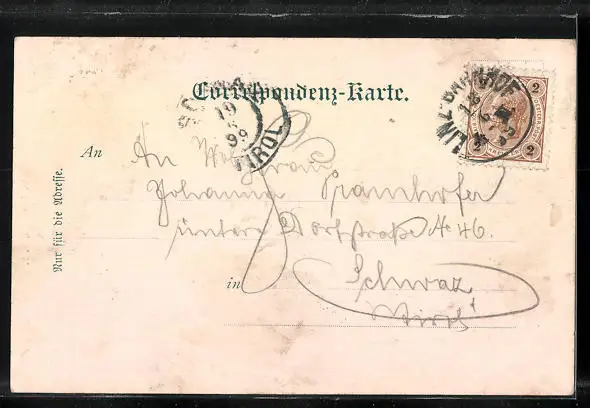 Correspondenz-Karte.
LINZ-BAHNHOF
2
2 2
19
99
TIROL
An
An
Johanna Spanhofer
untere Dorfstraße № 46.
in
Schwaz
Tirol
Nur für die Adresse.